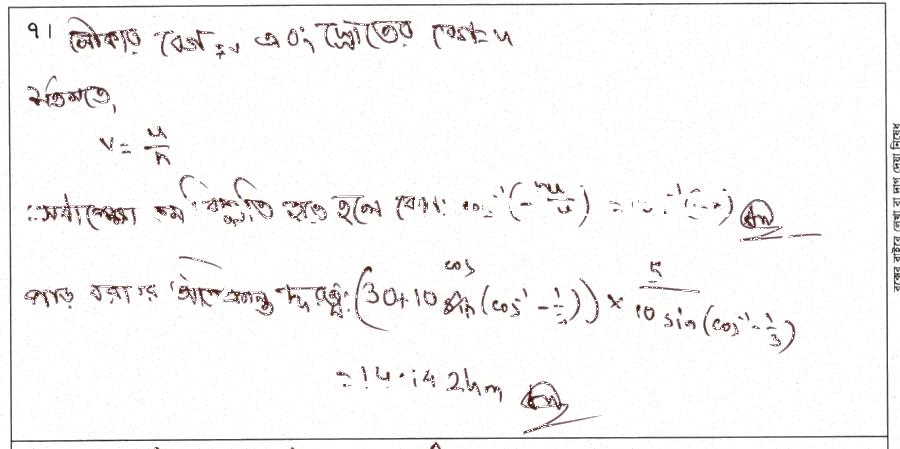 ৭। নৌকার বেগ = v এবং স্রোতের বেগ = u
শর্তমতে,
v = u/n
∴ সর্বাপেক্ষা কম বিচ্যুতি হতে হলে কোণ: cos⁻¹(-v/u) = cos⁻¹( ) Ans
পাড় বরাবর অতিক্রান্ত দূরত্ব: (30+10 cos (cos⁻¹ - 1/3)) × 5/(10 sin (cos⁻¹ - 1/3))
= 14.142 km Ans
বক্সের বাইরে লেখা বা দাগ দেয়া নিষেধ